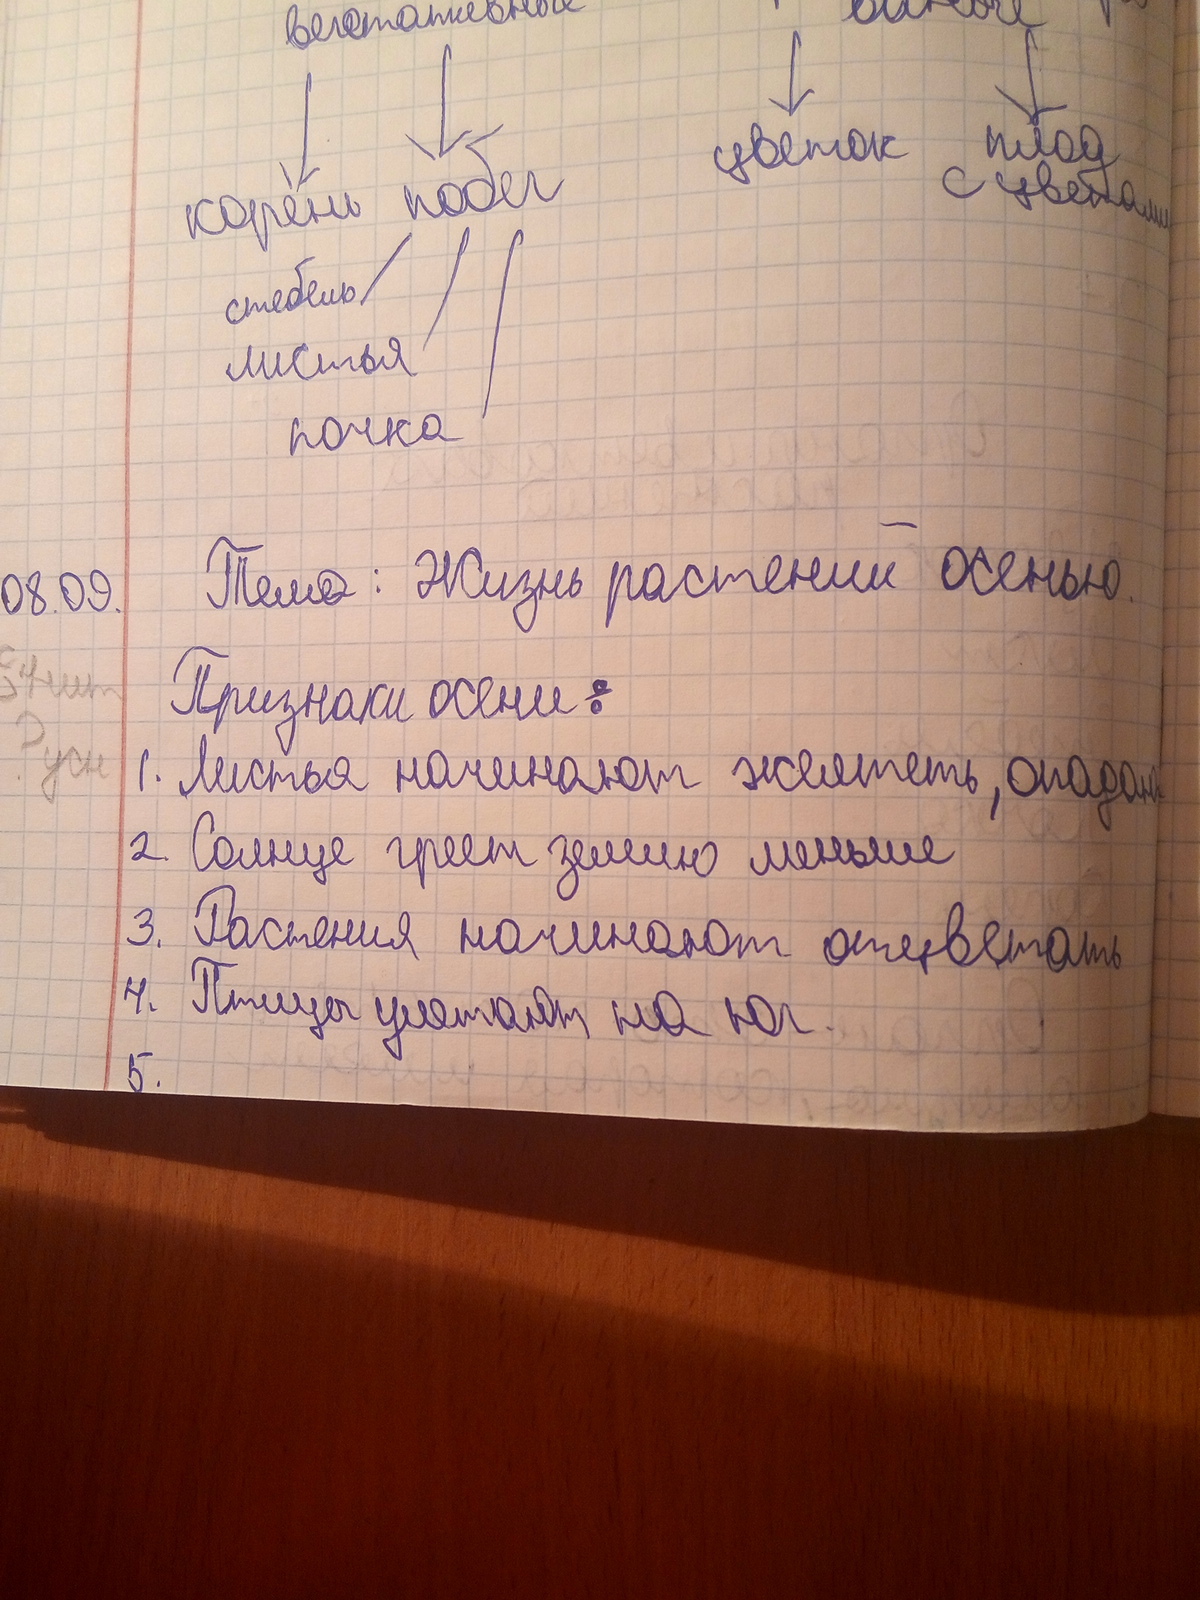 вегетативные
цветок плод
корень побег с цветами
стебель
листья
почка
08.09. Тема: Жизнь растений осенью.
Признаки осени:
1. Листья начинают желтеть, опадают
2. Солнце греет землю меньше
3. Растения начинают отцветать
4. Птицы улетают на юг.
5.